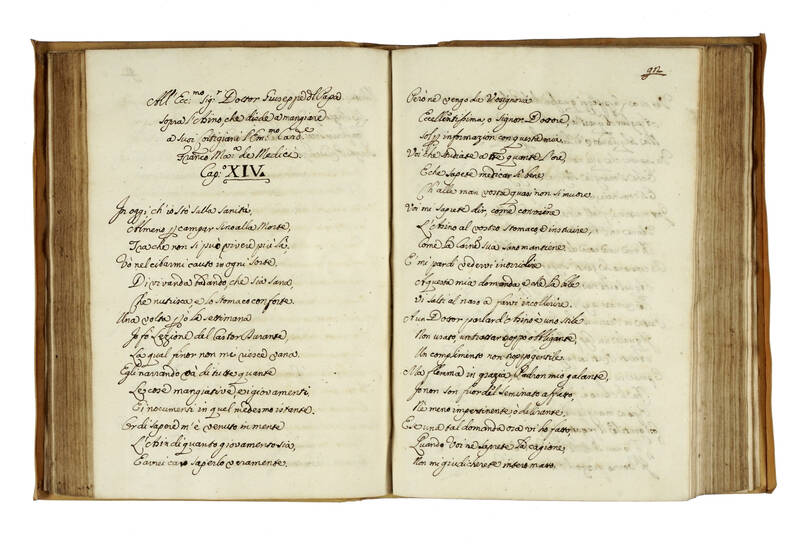 All'Ecc.mo Sig.r Dottor Giuseppe del Papa
sopra l'chino, che diede a mangiare
a suoi Cortigiani l'Em.mo Card.e
Franc.o Ma.a de Medici.
Cap.o XIV.
In oggi ch'io stò sulla sanità,
Almeno p campar sino alla Morte,
Già che non si può vivere più là,
Vò nel cibarmi cauto in ogni sorte
Di vivanda badando, che sia sana,
Che nutrisca, e lo stomaco conforte.
Una volta p lo la settimana
Io fò lezione del Castor Durante,
La qual finor non mi riesce vana.
Egli narrando và di tutte quante
Le cose mangiative, e i giovamenti,
Ei nocumenti in quel medesmo istante.
Or di sapere m'è venuto in mente
L'chin di quanto giovamento sia,
E avrei caro saperlo veramente.
92
Però ne vengo da Vosignoria
Eccellentissima, o Signor Dottore,
p informazion con questa mia,
Voi che studiate a tutte quante l'ore,
E che sapete medicar sì bene
Ch'alle man vostre quasi non si muore.
Voi mi sapete dir, come conviene
L'chino al vostro stomaco instruire,
Come la carne sua sano mantiene.
E mi pardi vedervi inorridire
A questa mia domanda, e che la bile
Vi salti al naso a farvi incollerire.
A un Dottor parlar d'chino è uno stile
Non usato, un trattar troppo obligante,
Un complimento non troppo gentile.
Ma flemma in grazia, Padron mio galante,
Io non son fuor del seminato affatto,
Nè meno impertinente, o delirante.
E se una tal domanda ora vi ho fatto,
Quando voi ne saprete la cagione,
Non mi giudicherete intero matto.